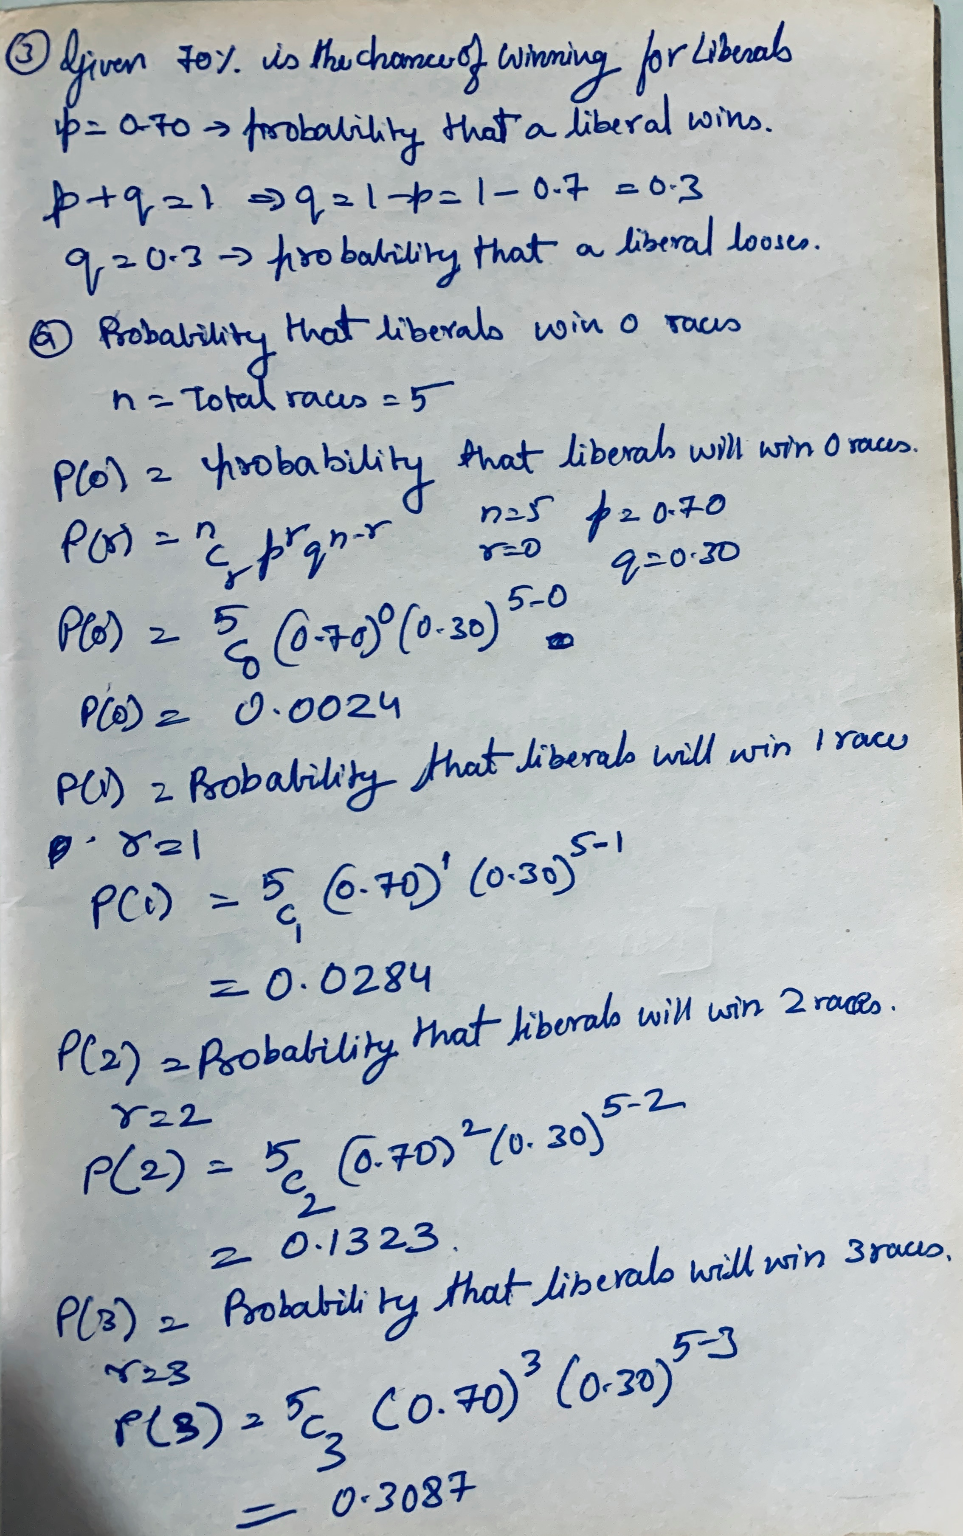 ③ Given 70% is the chance of winning for Liberals
p = 0.70 → probability that a liberal wins.
p + q = 1 ⇒ q = 1 - p = 1 - 0.7 = 0.3
q = 0.3 → probability that a liberal looses.
ⓐ Probability that liberals win 0 races
n = Total races = 5
P(0) = probability that liberals will win 0 races.
P(r) = nCr p^r q^(n-r) n=5 p = 0.70
r=0 q=0.30
P(0) = 5C0 (0.70)^0 (0.30)^(5-0)
P(0) = 0.0024
P(1) = Probability that liberals will win 1 race
r=1
P(1) = 5C1 (0.70)^1 (0.30)^(5-1)
= 0.0284
P(2) = Probability that liberals will win 2 races.
r=2
P(2) = 5C2 (0.70)^2 (0.30)^(5-2)
= 0.1323.
P(3) = Probability that liberals will win 3 races.
r=3
P(3) = 5C3 (0.70)^3 (0.30)^(5-3)
= 0.3087